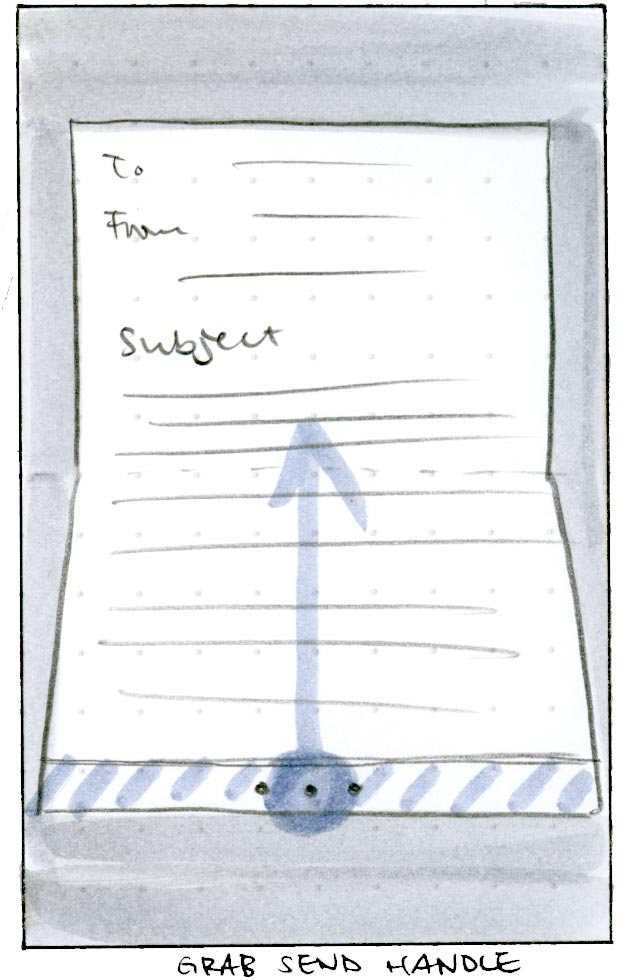 To
From
Subject
GRAB SEND HANDLE